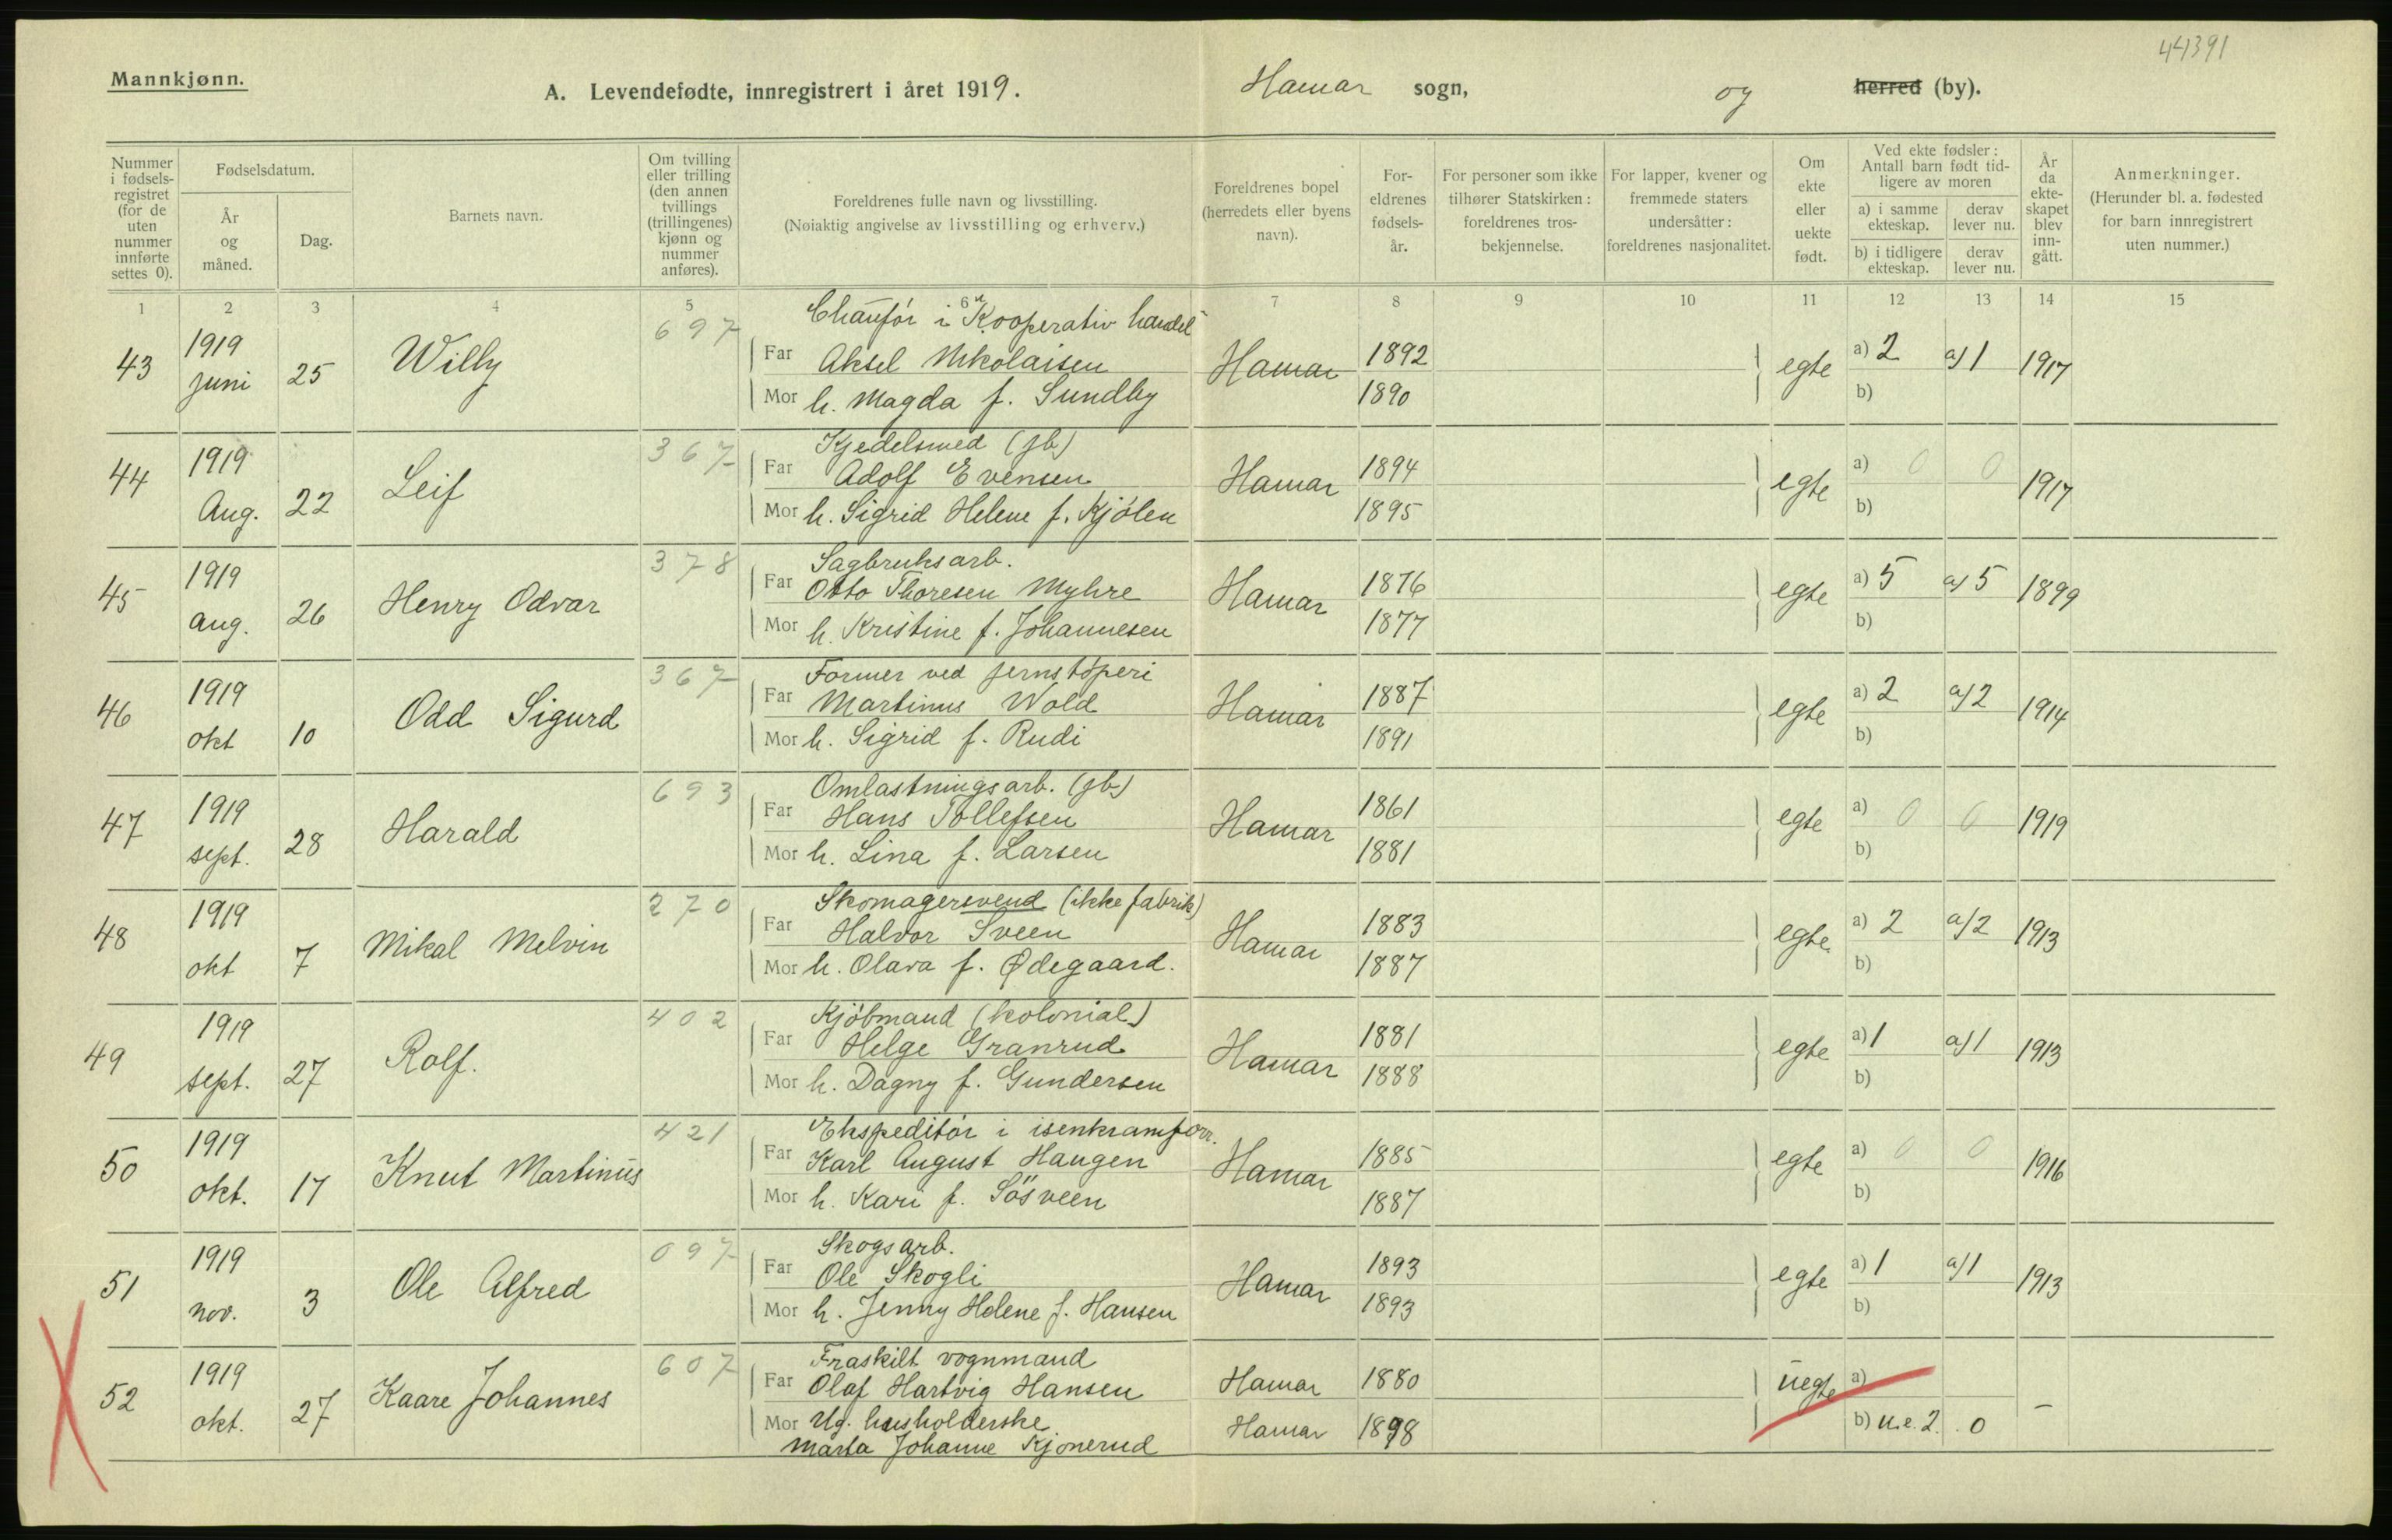 44391
Mannkjønn.
A. Levendefødte, innregistrert i året 1919. Hamar sogn, og herred (by).
Nummer i fødsels-registret (for de uten nummer innførte settes 0).
Fødselsdatum.
År og måned.
Dag.
Barnets navn.
Om tvilling eller trilling (den annen tvillings (trillingenes) kjønn og nummer anføres).
Foreldrenes fulle navn og livsstilling.
(Nøiaktig angivelse av livsstilling og erhverv.)
Foreldrenes bopel (herredets eller byens navn).
For-eldrenes fødsels-år.
For personer som ikke tilhører Statskirken: foreldrenes tros-bekjennelse.
For lapper, kvener og fremmede staters undersåtter: foreldrenes nasjonalitet.
Om ekte eller uekte født.
Ved ekte fødsler: Antall barn født tid-ligere av moren
a) i samme ekteskap.
derav lever nu.
b) i tidligere ekteskap.
derav lever nu.
År da ekte-skapet blev inn-gått.
Anmerkninger.
(Herunder bl. a. fødested for barn innregistrert uten nummer.)
1 2 3 4 5 6 7 8 9 10 11 12 13 14 15
697 Chaufór i Kooperativ handel
43 1919 juni 25 Willy Far Aksel Nikolaisen Hamar 1892 egte a) 2 a) 1 1917
Mor h. Magda f. Sundby 1890 b)
367 Kjedelsmed (jb)
44 1919 Aug. 22 Leif Far Adolf Evensen Hamar 1894 egte a) 0 0 1917
Mor h. Sigrid Helene f. Kjólen 1895 b)
378 Sagbruksarb.
45 1919 aug. 26 Henry Odvar Far Otto Thoresen Myhre Hamar 1876 egte a) 5 a) 5 1899
Mor h. Kristine f. Johannesen 1877 b)
367 Former ved jernstóperi
46 1919 okt 10 Odd Sigurd Far Martinus Wold Hamar 1887 egte a) 2 a) 2 1914
Mor h. Sigrid f. Rudi 1891 b)
693 Omlastningsarb. (jb)
47 1919 sept. 28 Harald Far Hans Tollefsen Hamar 1861 egte a) 0 0 1919
Mor h. Lina f. Larsen 1881 b)
270 Skomagersvend (ikke fabrik)
48 1919 okt 7 Mikal Melvin Far Halvor Sveen Hamar 1883 egte a) 2 a) 2 1913
Mor h. Olava f. Ødegaard. 1887 b)
402 Kjóbmand (kolonial)
49 1919 sept. 27 Rolf. Far Helge Granrud Hamar 1881 egte a) 1 a) 1 1913
Mor h. Dagny f. Gundersen 1888 b)
421 Ekspeditór i isenkramforr.
50 1919 okt. 17 Knut Martinus Far Karl August Haugen Hamar 1885 egte a) 0 0 1916
Mor h. Kari f. Sösveen 1887 b)
097 Skogsarb.
51 1919 nov. 3 Ole Alfred Far Ole Skogli Hamar 1893 egte a) 1 a) 1 1913
Mor h. Jenny Helene f. Hansen 1893 b)
607 Fraskilt vognmand
52 1919 okt. 27 Kaare Johannes Far Olaf Hartvig Hansen Hamar 1880 uegte a) –
Mor Ug. husholderske Hamar 1898 b) u.e. 2. 0
Marta Johanne Kjonerud